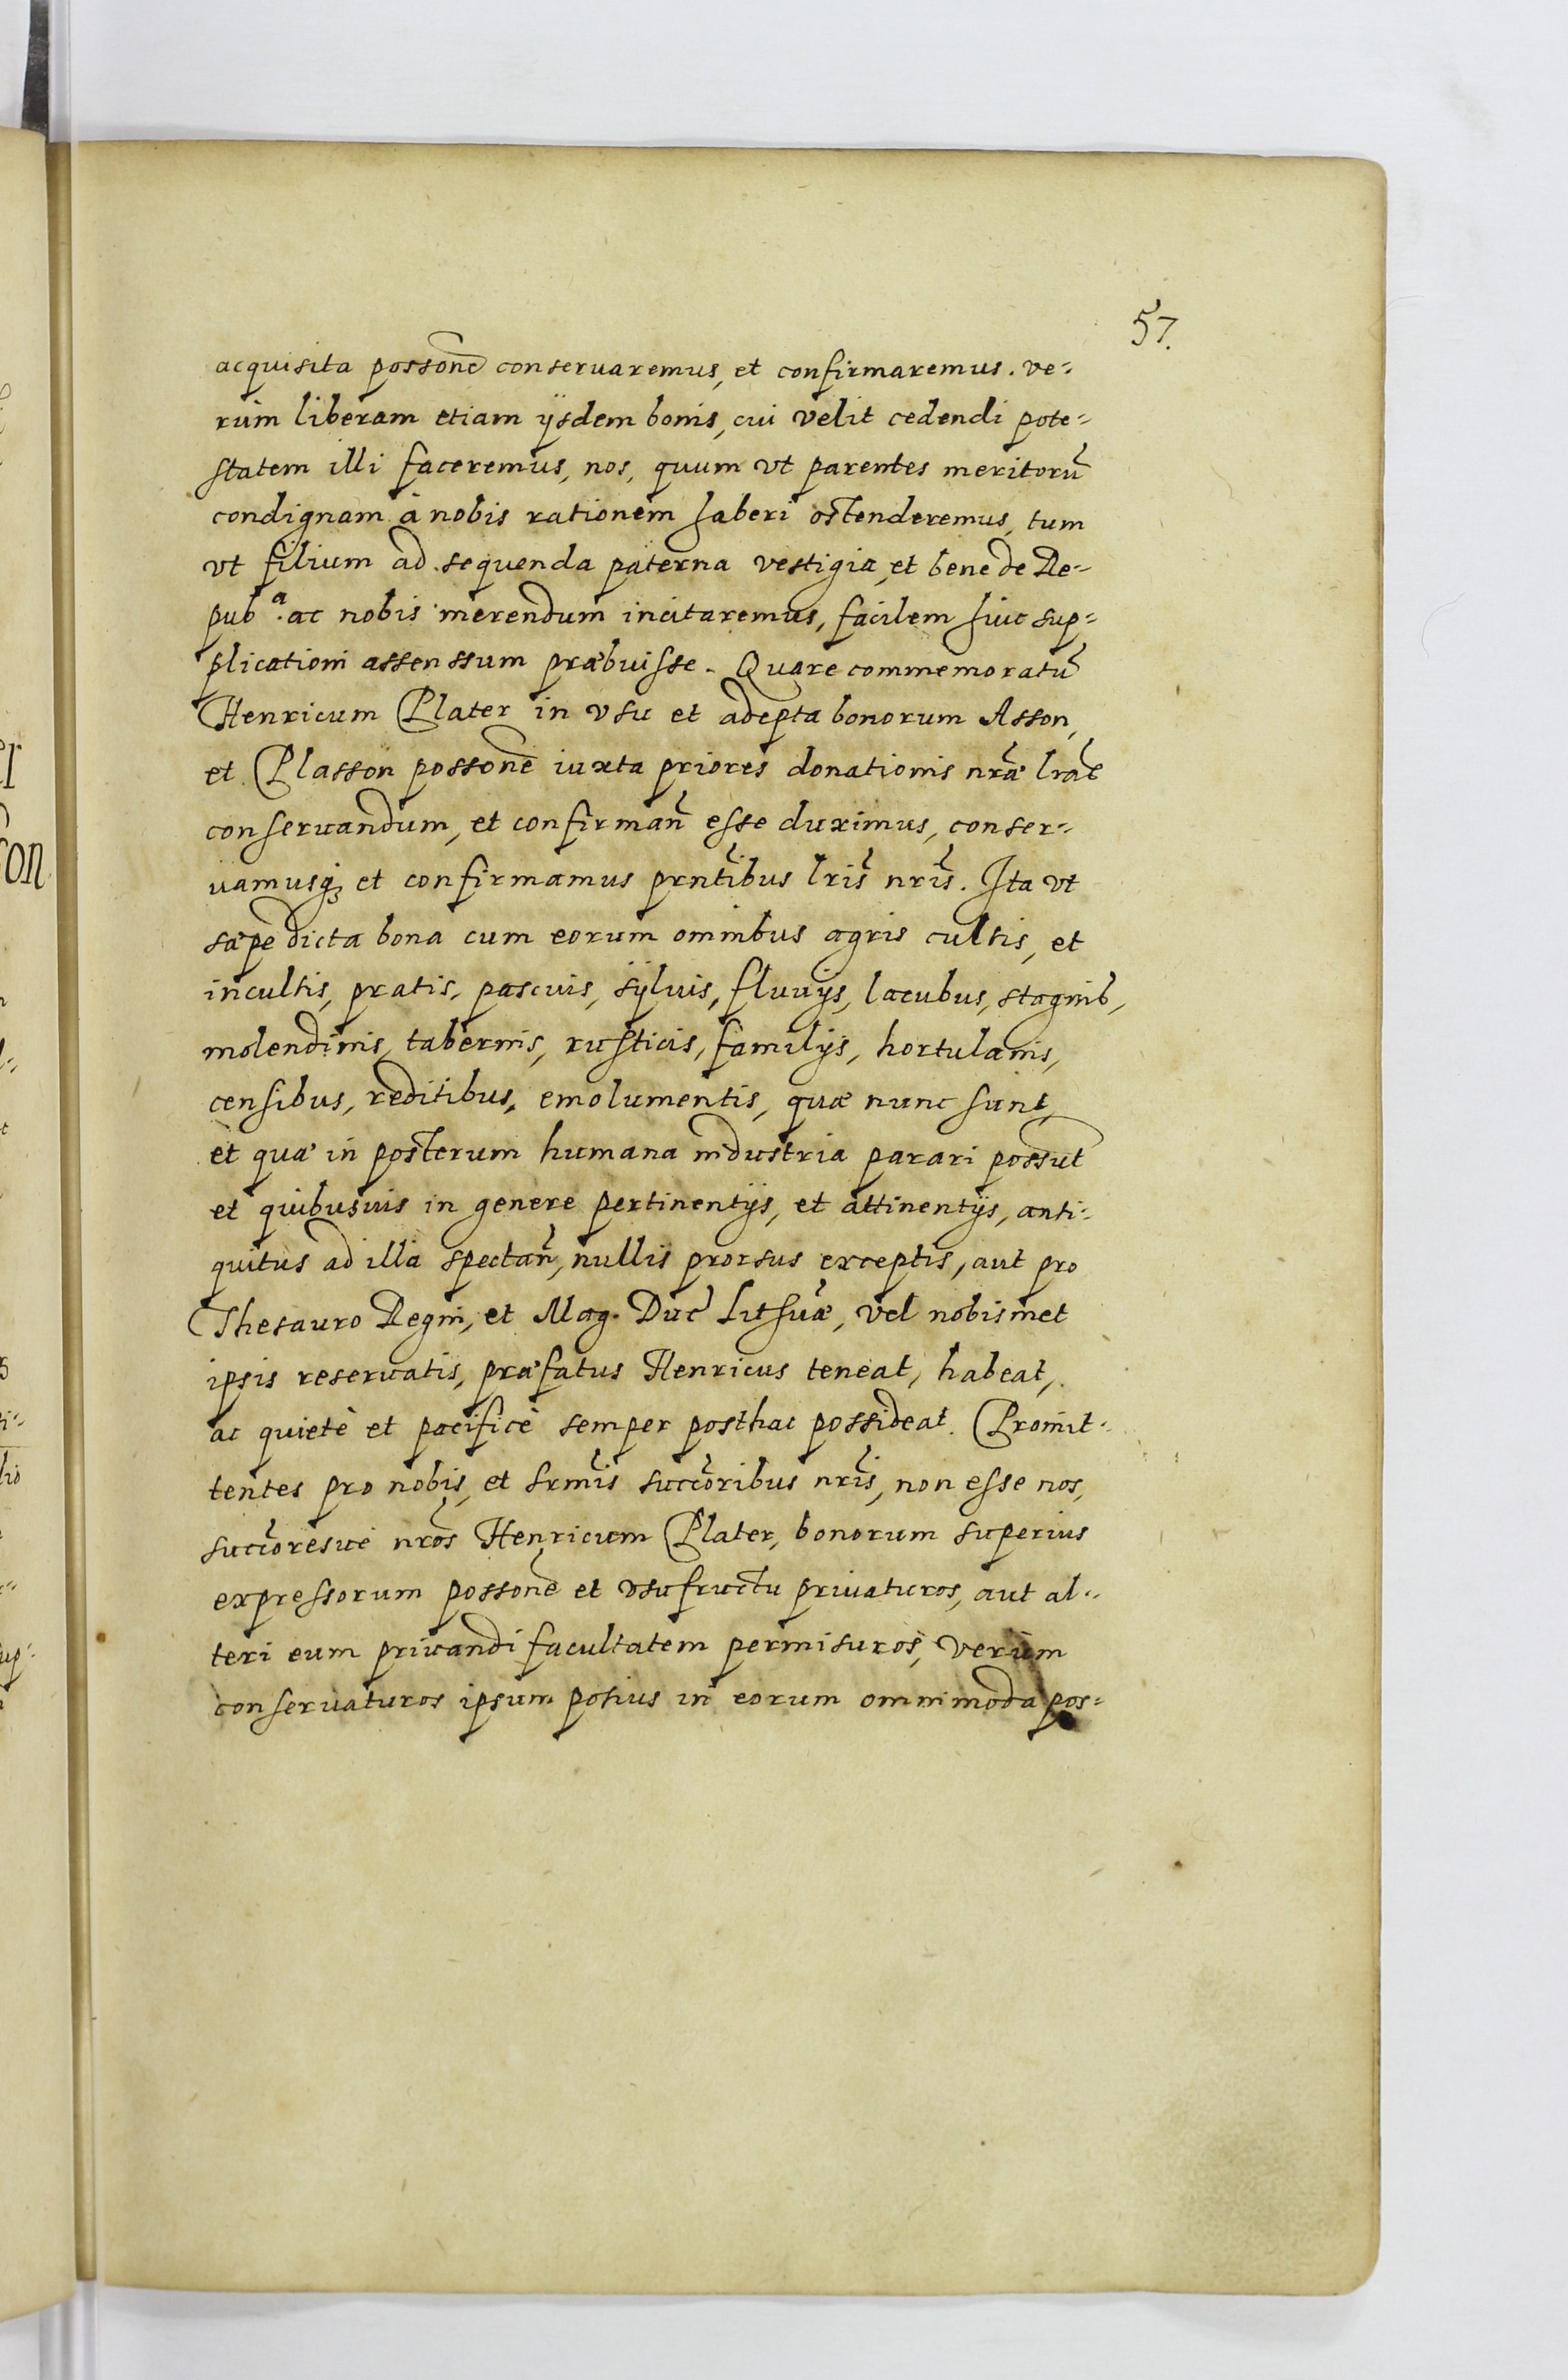 57.
acquisita possone conservaremus, et confirmaremus. ve-
rùm liberam etiam ijsdem bonis, cui velit cedendi pote-
statem illi faceremus, nos, quum vt parentes meritorũ
condignam à nobis rationem haberi ostenderemus, tum
vt filium ad sequenda paterna vestigia, et bene de Re-
pub.ᵃ ac nobis merendum incitaremus, facilem huic sup-
plicationi assenssum præbuisse. Quare commemoratũ
Henricum Plater in vsu et adepta bonorum Asson,
et Plasson possone iuxta priores donationis nr̃æ lr̃as
conseruandum, et confirmañ esse duximus, conser-
uamusq; et confirmamus prñtibus lr̃is nr̃is. Ita vt
sæpe dicta bona cum eorum omnibus agris cultis, et
incultis, pratis, pascuis, sÿluis, fluuijs, lacubus, stagnib,
molendinis, tabernis, rusticis, familijs, hortulanis,
censibus, reditibus, emolumentis, quæ nunc sunt,
et quæ in posterum humana industria parari possũt
et quibusuis in genere pertinentijs, et attinentijs, anti-
quitus ad illa spectañ, nullis prorsus exceptis, aut pro
Thesauro Regni, et Mag. Duc̃ Lithuæ, vel nobismet
ipsis reseruatis, præfatus Henricus teneat, habeat,
ac quietè et pacificè semper posthac possideat. Promit-
tentes pro nobis, et srm̃is succõribus nr̃is, non esse nos,
succõresue nr̃os Henricum Plater, bonorum superius
expressorum possone et vsufructu priuaturos, aut al-
teri eum priuandi facultatem permisuros, verùm
conseruaturos ipsum potius in eorum omnimoda pos-